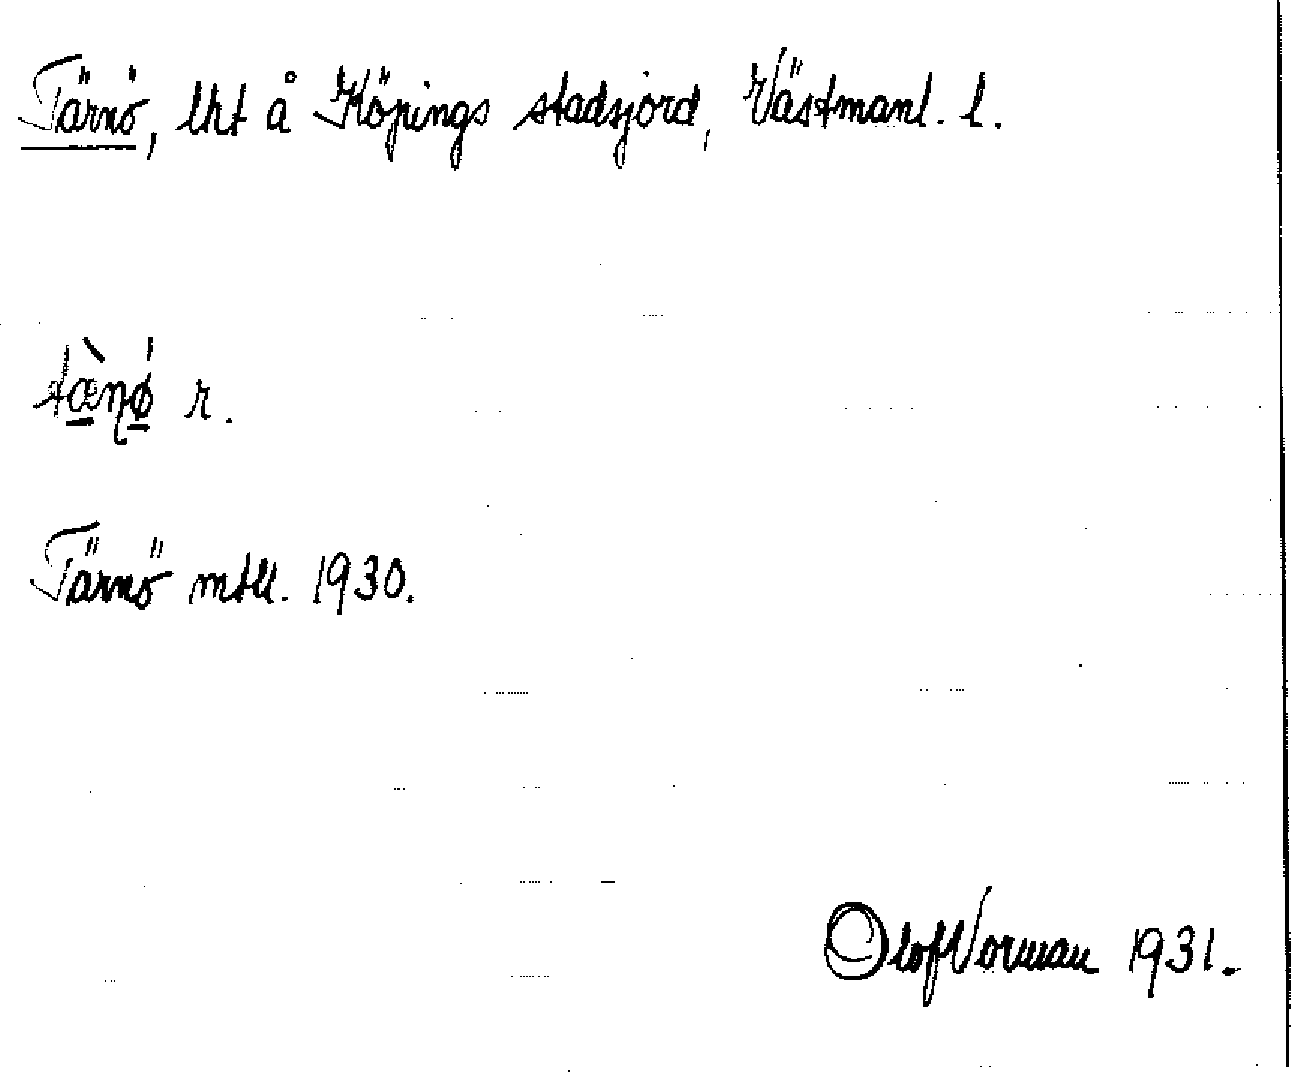 Tärnö, lht å Köpings stadsjord, Västmanl. l.
tæ̀ṇǿ r.
Tärnö mtll. 1930.
Olof Norman 1931.